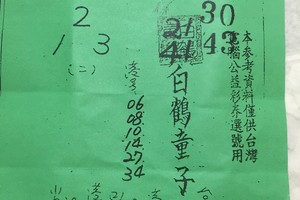 本參考資料僅供台灣
電腦公益彩券選號用
30
43
21
41
白鶴童子
2
1 3
(二)
06
08
10
14
27
34